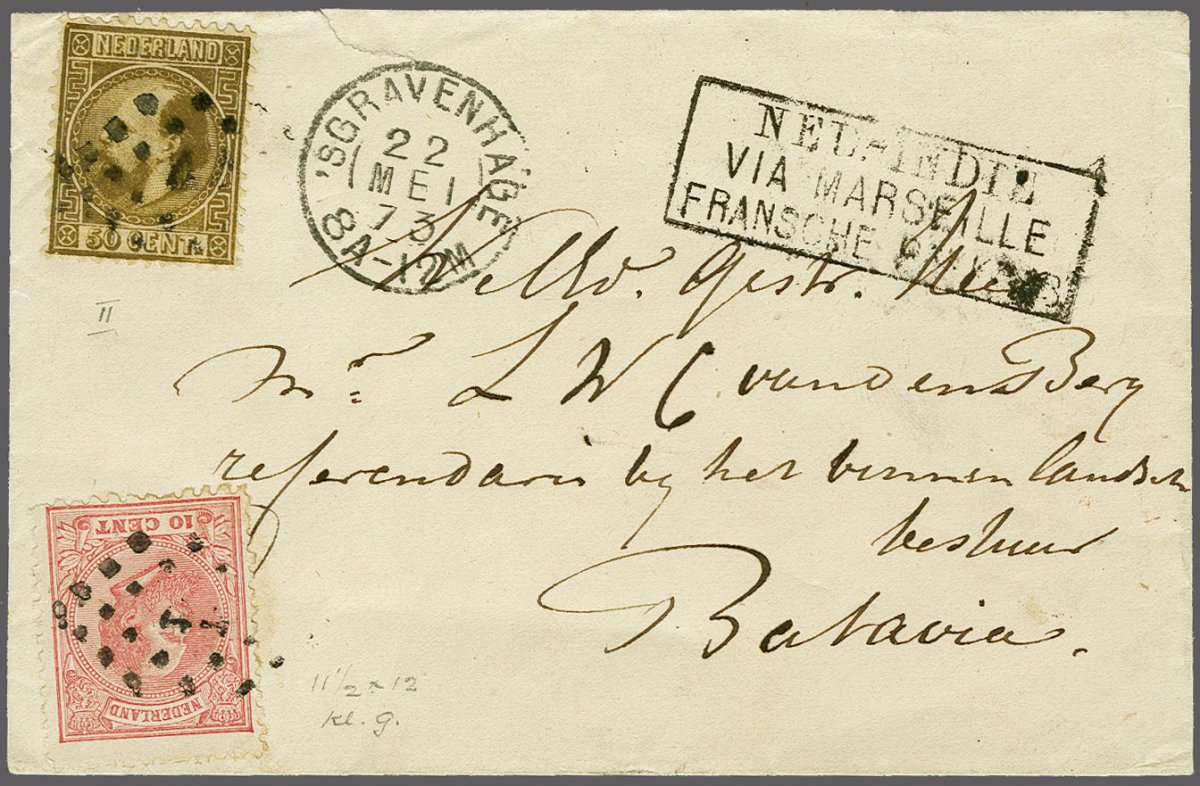 NEDERLAND
50 CENT.
'SGRAVENHAGE
22
MEI
73
8A-12M
NED-INDIE
VIA MARSEILLE
FRANSCHE
WelEd. Gestr. Heer
Mr. L W C van den Berg
referendaris bij het binnenlandsch
bestuur
Batavia.
II
10 CENT
NEDERLAND
11 1/2 x 12
kl. g.